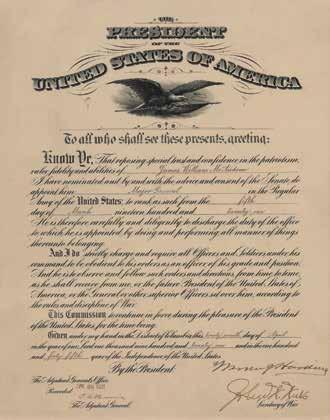 THE
PRESIDENT
OF THE
UNITED STATES OF AMERICA
To all who shall see these presents, greeting:
Know Ye, That reposing special trust and confidence in the patriotism,
valor, fidelity and abilities of James William McAndrew
I have nominated and by and with the advice and consent of the Senate do
appoint him Major General in the Regular
Army of the United States: to rank as such from the fifth
day of March nineteen hundred and twenty one
He is therefore carefully and diligently to discharge the duty of the office
to which he is appointed by doing and performing all manner of things
thereunto belonging.
And I do strictly charge and require all Officers and Soldiers under his
command to be obedient to his orders as an officer of his grade and position.
And he is to observe and follow such orders and directions, from time to time,
as he shall receive from me, or the future President of the United States of
America, or the General or other superior Officers set over him, according to
the rules and discipline of War.
This Commission to continue in force during the pleasure of the President
of the United States, for the time being.
Given under my hand in the District of Columbia this day of April
in the year of our Lord one thousand nine hundred and twenty one and in the one hundred
and forty fifth year of the Independence of the United States.
By the President
Warren G Harding
The Adjutant General's Office
Recorded
The Adjutant General
Secretary of War